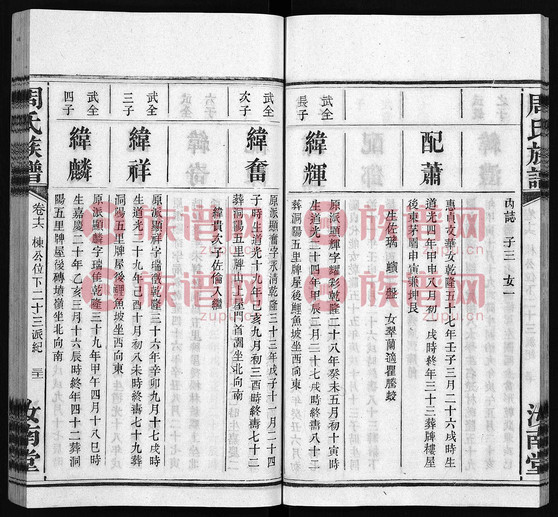 周氏族譜
汝南堂
配蕭
內誌 子三 女一
惠貞文華女乾隆五十七年壬子三月二十六戌時生
道光四年甲申八月初一戌時終年三十三葬牌樓屋
後東茅廟申寅兼坤艮
生佐瑀 女翠蘭適瞿騰蛟
武全
長子
緯輝
原派顯輝字耀彩乾隆二十八年癸未五月初十寅時
生道光二十四年甲辰二月二十七戌時終壽八十二
葬洞陽五里牌屋後鯉魚坡坐西向東
武全
次子
緯奮
原派顯奮字永清乾隆三十三年戊子十一月二十四
子時生道光十九年己亥九月初三酉時終壽七十二
葬洞陽五里牌大上屋門首園坐北向南
緯貴次子佐倫入繼
武全
三子
緯祥
原派顯祥字瑞儀乾隆三十六年辛卯九月十七戌時
生道光二十九年己酉七月初八未時終壽七十九葬
洞陽五里牌屋後鯉魚坡坐西向東
武全
四子
緯麟
原派顯麟字瑞徵乾隆三十九年甲午四月十八巳時
生嘉慶二十年乙亥三月十六辰時終年四十二葬洞
陽五里牌屋後磚塘嶺坐北向南
周氏族譜
卷六 棟公位下二十三派紀
汝南堂
族譜網
zupu.cn